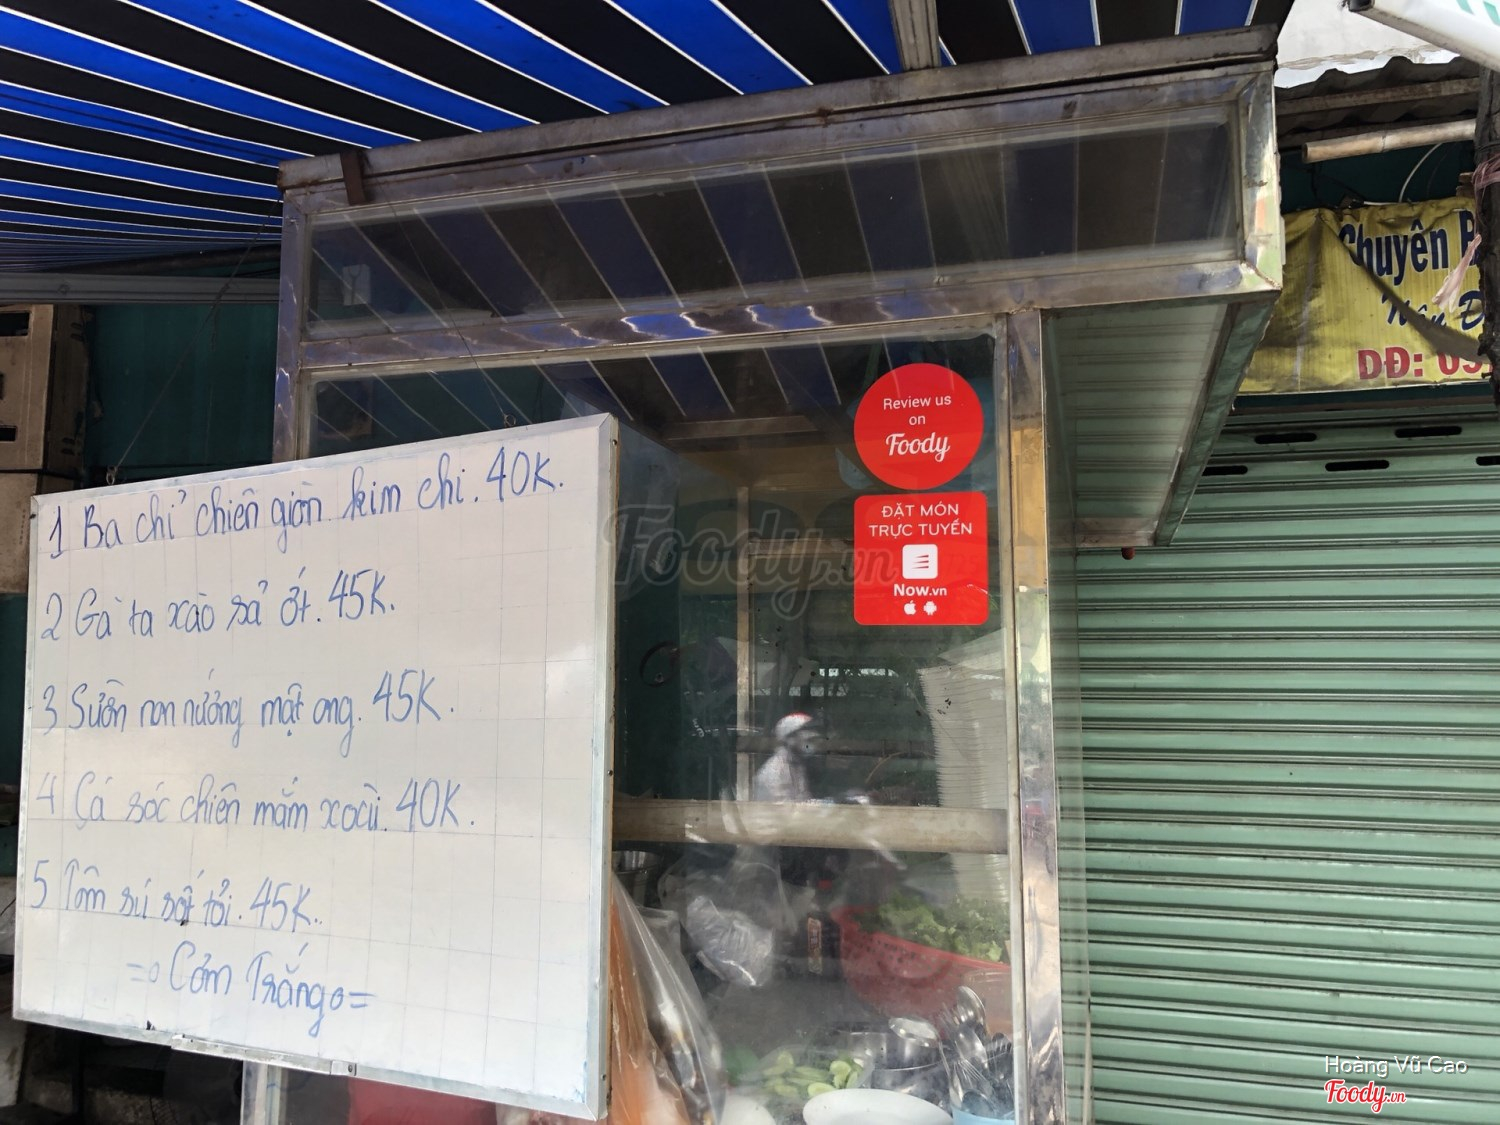 1 Ba chỉ chiên giòn kim chi. 40K.
2 Gà ta xào sả ớt. 45K.
3 Sườn non nướng mật ong. 45K.
4 Cá sóc chiên mắm xoài. 40K.
5 Tôm sú sốt tỏi. 45K.
=o Cơm Trắng o=
Review us
on
Foody
ĐẶT MÓN
TRỰC TUYẾN
Now.vn
Foody.vn
Chuyên
DĐ:
Hoàng Vũ Cao
Foody.vn